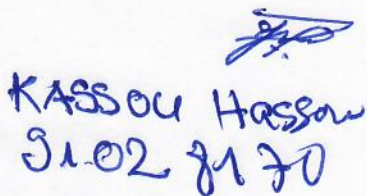 KASSOU Hassan
91.02 81 70